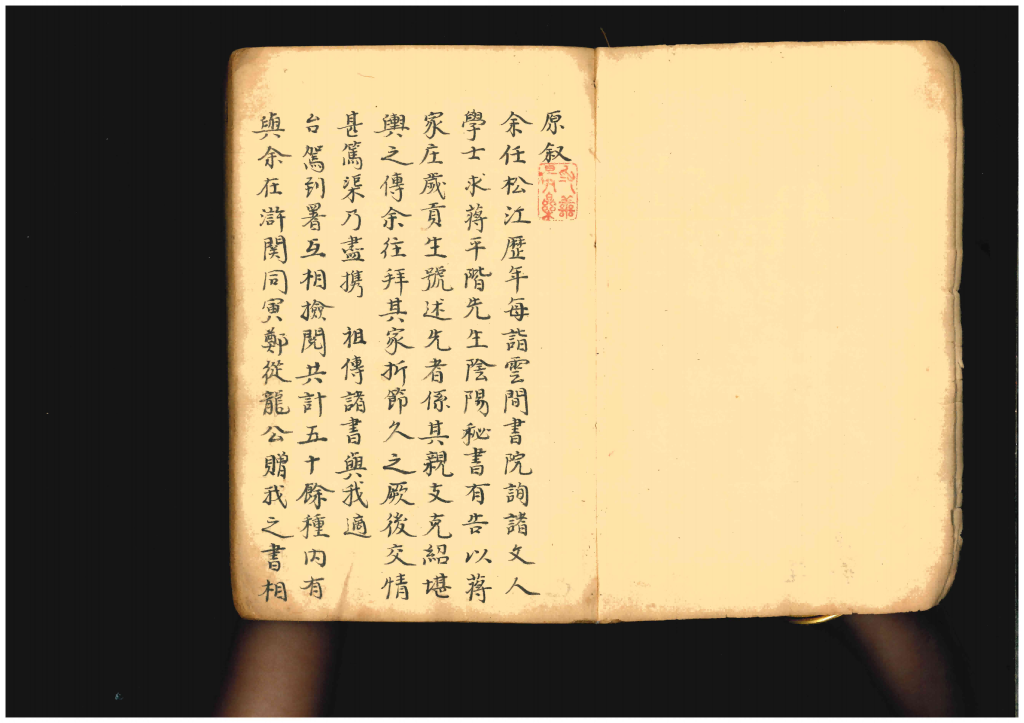 原叙
余任松江歷年每詣雲間書院詢諸文人
學士求蔣平階先生陰陽秘書有告以蔣
家庄歲貢生號述先者係其親支克紹堪
輿之傳余往拜其家折節久之厥後交情
甚篤渠乃盡携 祖傳諸書與我適
台駕到署互相撿閱共計五十餘種内有
與余在滸関同寅鄭從龍公贈我之書相